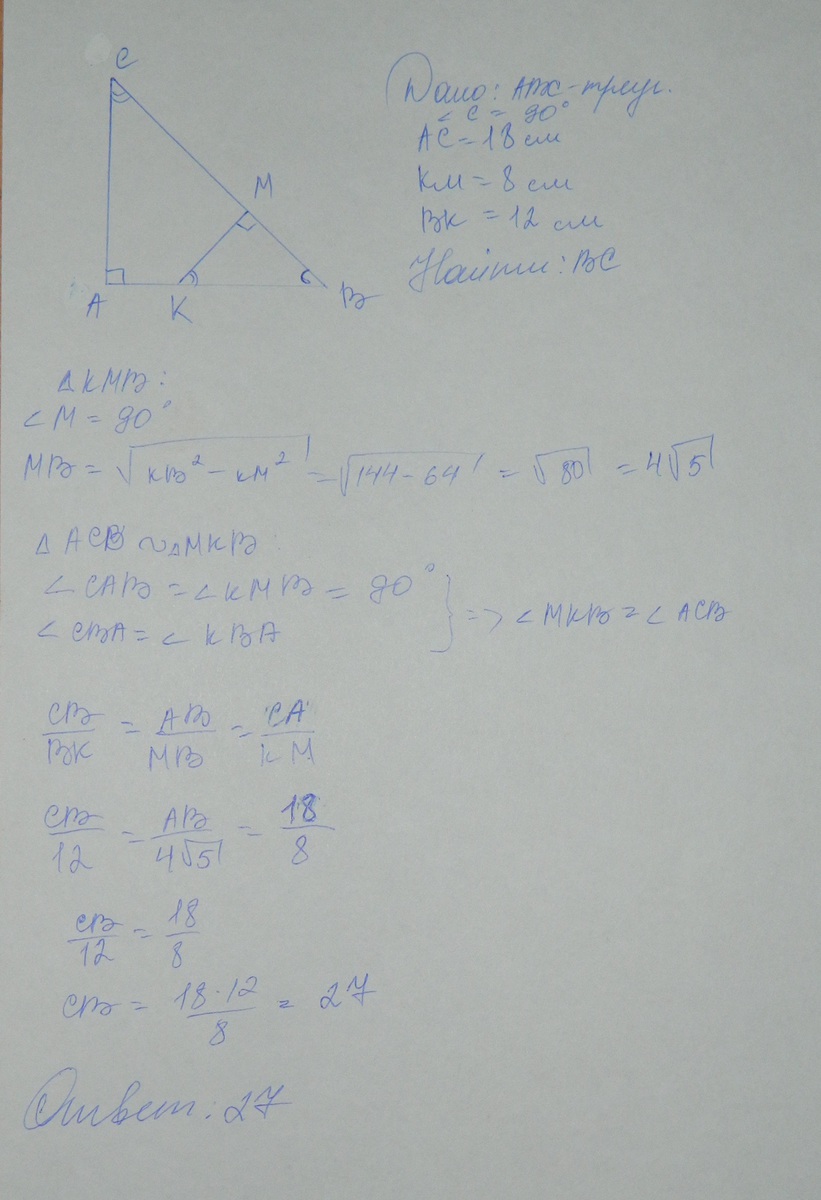 C
M
A
K
B
Дано: ABC - треуг.
∠ C = 90°
AC = 18 см
KM = 8 см
BK = 12 см
Найти: BC
△KMB:
∠M = 90°
MB = √(KB² - KM²) = √(144 - 64) = √80 = 4√5
△ ACB ∾ △MKB:
∠ CAB = ∠ KMB = 90°
∠ CBA = ∠ KBA
} => ∠ MKB = ∠ ACB
CB/BK = AB/MB = CA/KM
CB/12 = AB/4√5 = 18/8
CB/12 = 18/8
CB = 18·12/8 = 27
Ответ: 27